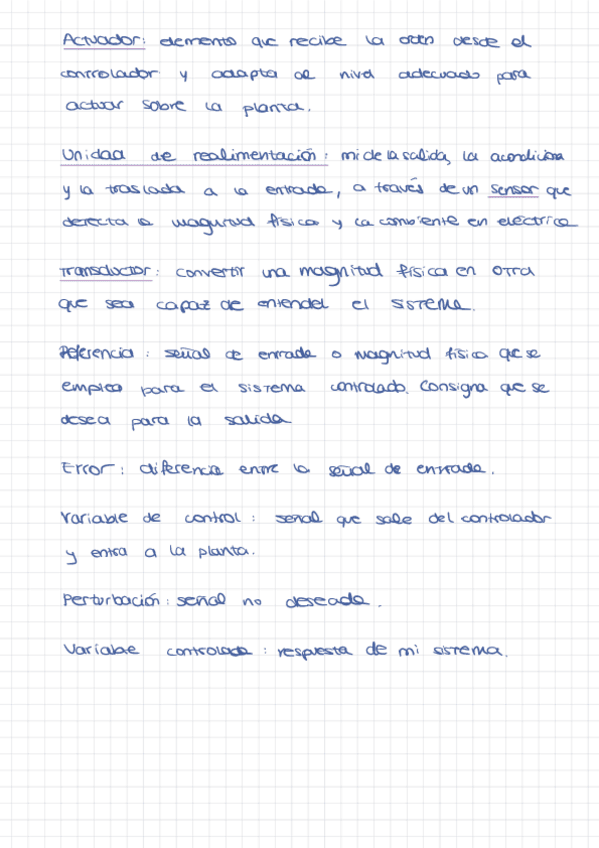 Actuador: elemento que recibe la orden desde el
controlador y adapta al nivel adecuado para
actuar sobre la planta.
Unidad de realimentación: mide la salida, la acondiciona
y la traslada a la entrada, a través de un sensor que
detecta la magnitud física y la convierte en eléctrica
Transductor: convertir una magnitud física en otra
que sea capaz de entendel el sistema.
Referencia: señal de entrada o magnitud física que se
emplea para el sistema controlado. Consigna que se
desea para la salida
Error: diferencia entre la señal de entrada.
Variable de control: señal que sale del controlador
y entra a la planta.
Perturbación: señal no deseada.
Variable controlada: respuesta de mi sistema.